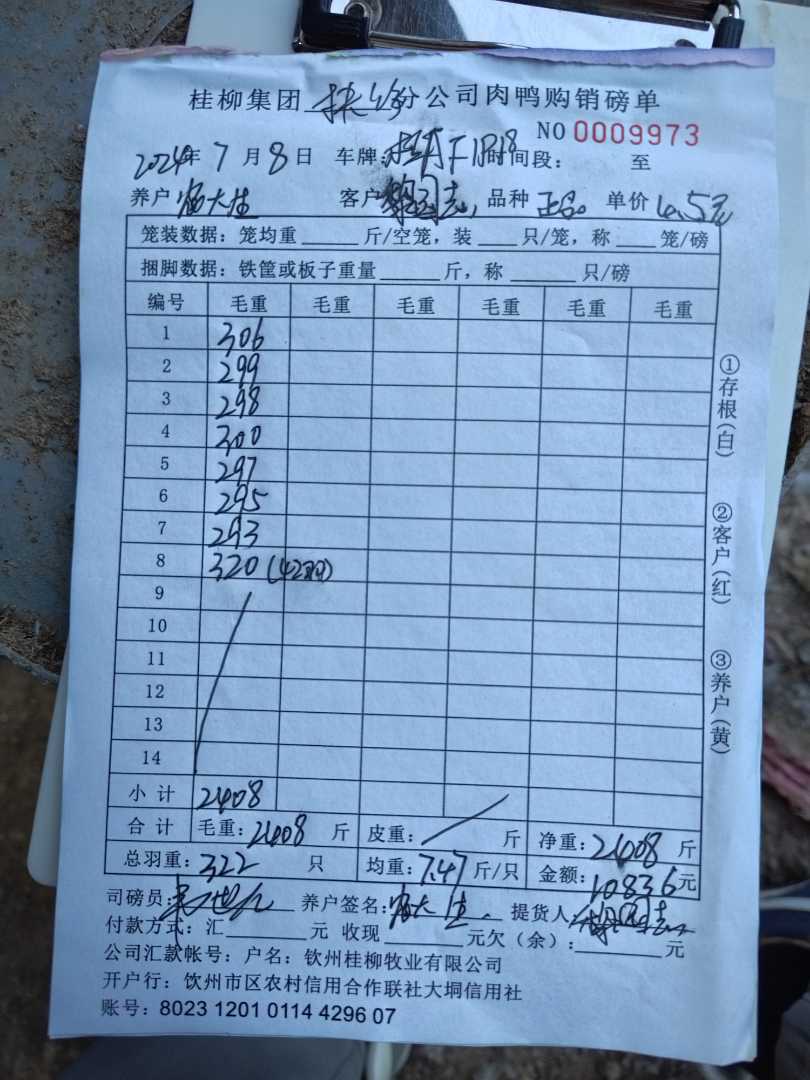 桂柳集团 分公司肉鸭购销磅单
NO 0009973
2024年 7 月 8 日 车牌: 时间段: 至
养户 大生 客户 品种 正品 单价 4.5元
笼装数据: 笼均重 斤/空笼, 装 只/笼, 称 笼/磅
捆脚数据: 铁筐或板子重量 斤, 称 只/磅
编号 毛重 毛重 毛重 毛重 毛重 毛重
1 306
2 299
3 298
4 300
5 297
6 295
7 293
8 320 (42羽)
9
10
11
12
13
14
小 计 2408
合 计 毛重: 2408 斤 皮重: 斤 净重: 2408 斤
总羽重: 322 只 均重: 7.47 斤/只 金额: 10836元
司磅员: 养户签名: 大生 提货人:
付款方式: 汇 元 收现 元欠(余): 元
公司汇款帐号: 户名: 钦州桂柳牧业有限公司
开户行: 钦州市区农村信用合作联社大垌信用社
账号: 8023 1201 0114 4296 07
①存根(白)
②客户(红)
③养户(黄)